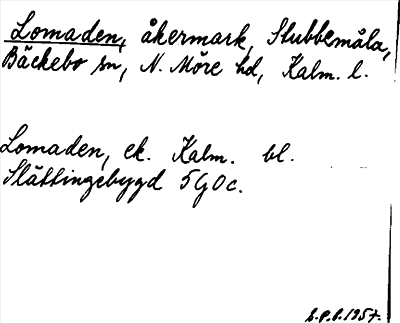 Lomaden, åkermark, Stubbemåla,
Bäckebo sn, N. Möre hd, Kalm. l.
Lomaden, ek. Kalm. bl.
Slättingebygd 5G0c.
1957.